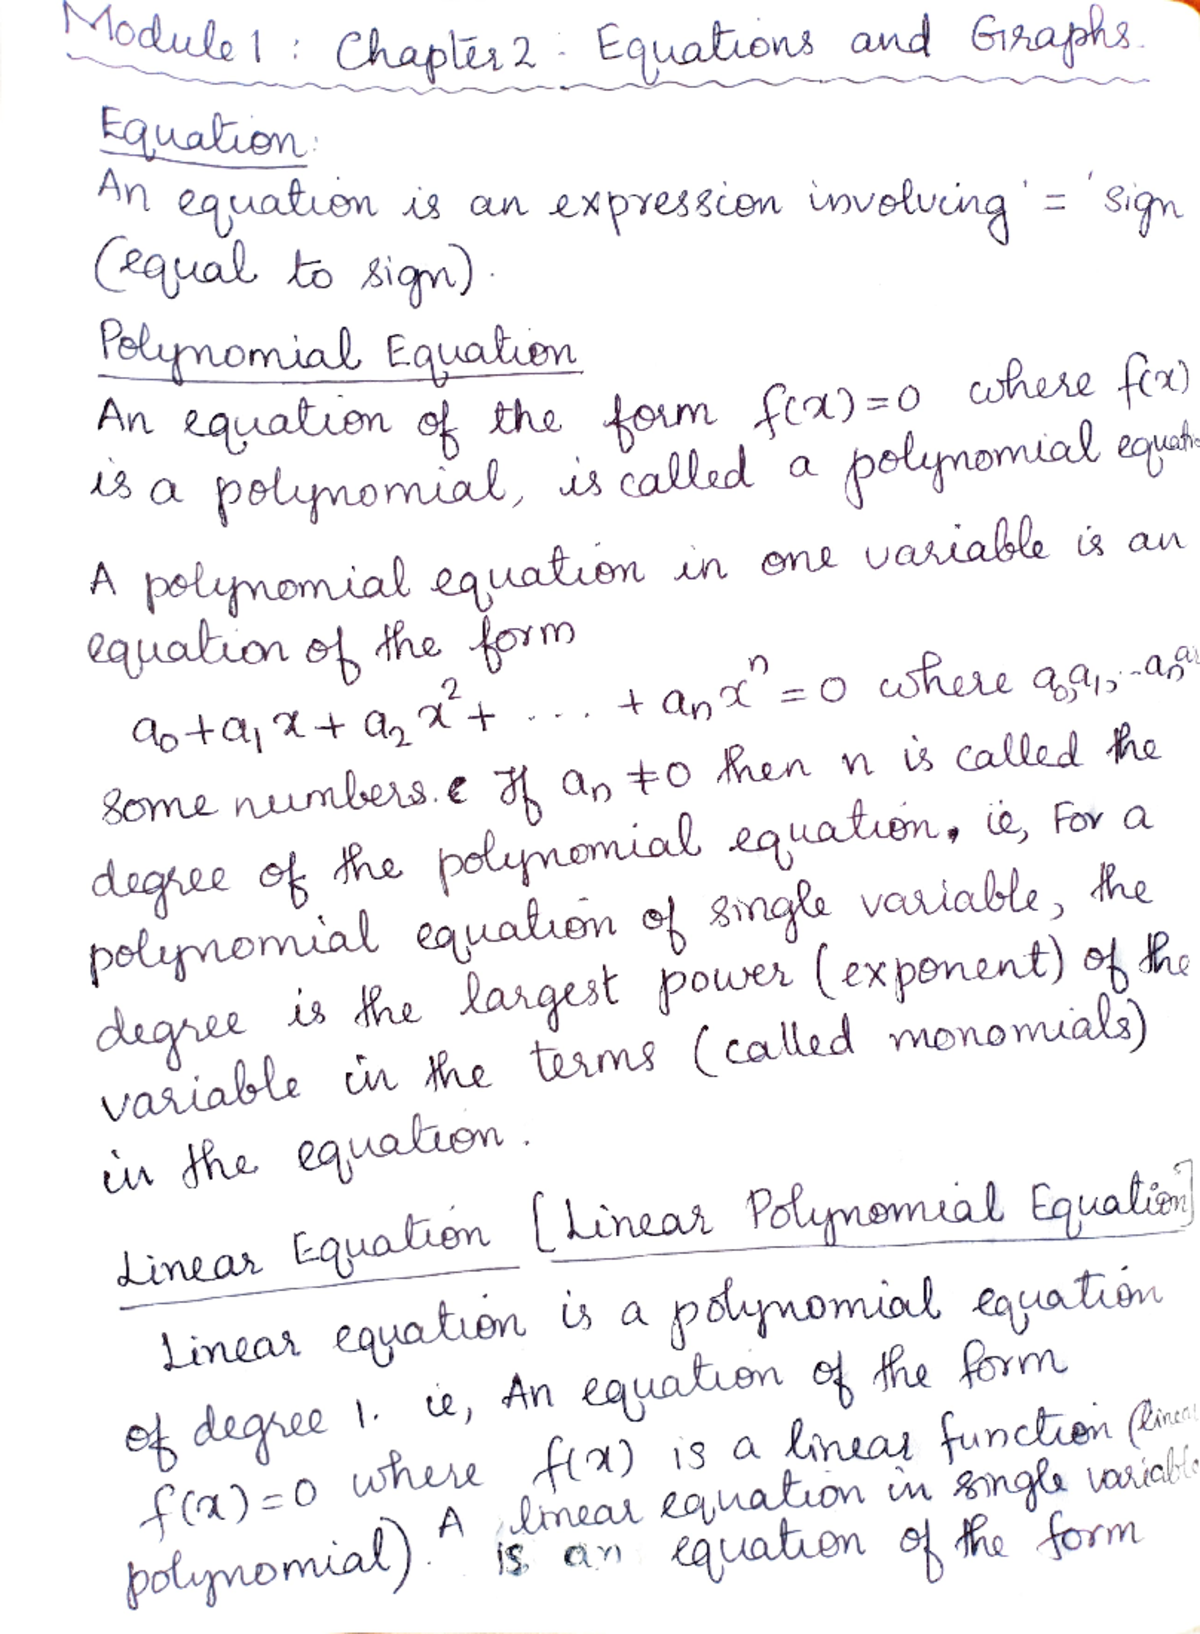 Module 1 : Chapter 2 : Equations and Graphs.
Equation:
An equation is an expression involving '=' sign
(equal to sign).
Polynomial Equation
An equation of the form f(x)=0 where f(x)
is a polynomial, is called a polynomial equatio
A polynomial equation in one variable is an
equation of the form
a₀+a₁x+a₂x²+ .... + aₙxⁿ=0 where a₀,a₁,..aₙ a
some numbers. If aₙ ≠0 then n is called the
degree of the polynomial equation. ie, For a
polynomial equation of single variable, the
degree is the largest power (exponent) of the
variable in the terms (called monomials)
in the equation.
Linear Equation [Linear Polynomial Equation]
Linear equation is a polynomial equation
of degree 1. ie, An equation of the form
f(x)=0 where f(x) is a linear function (linear
polynomial). A linear equation in single variable
is an equation of the form